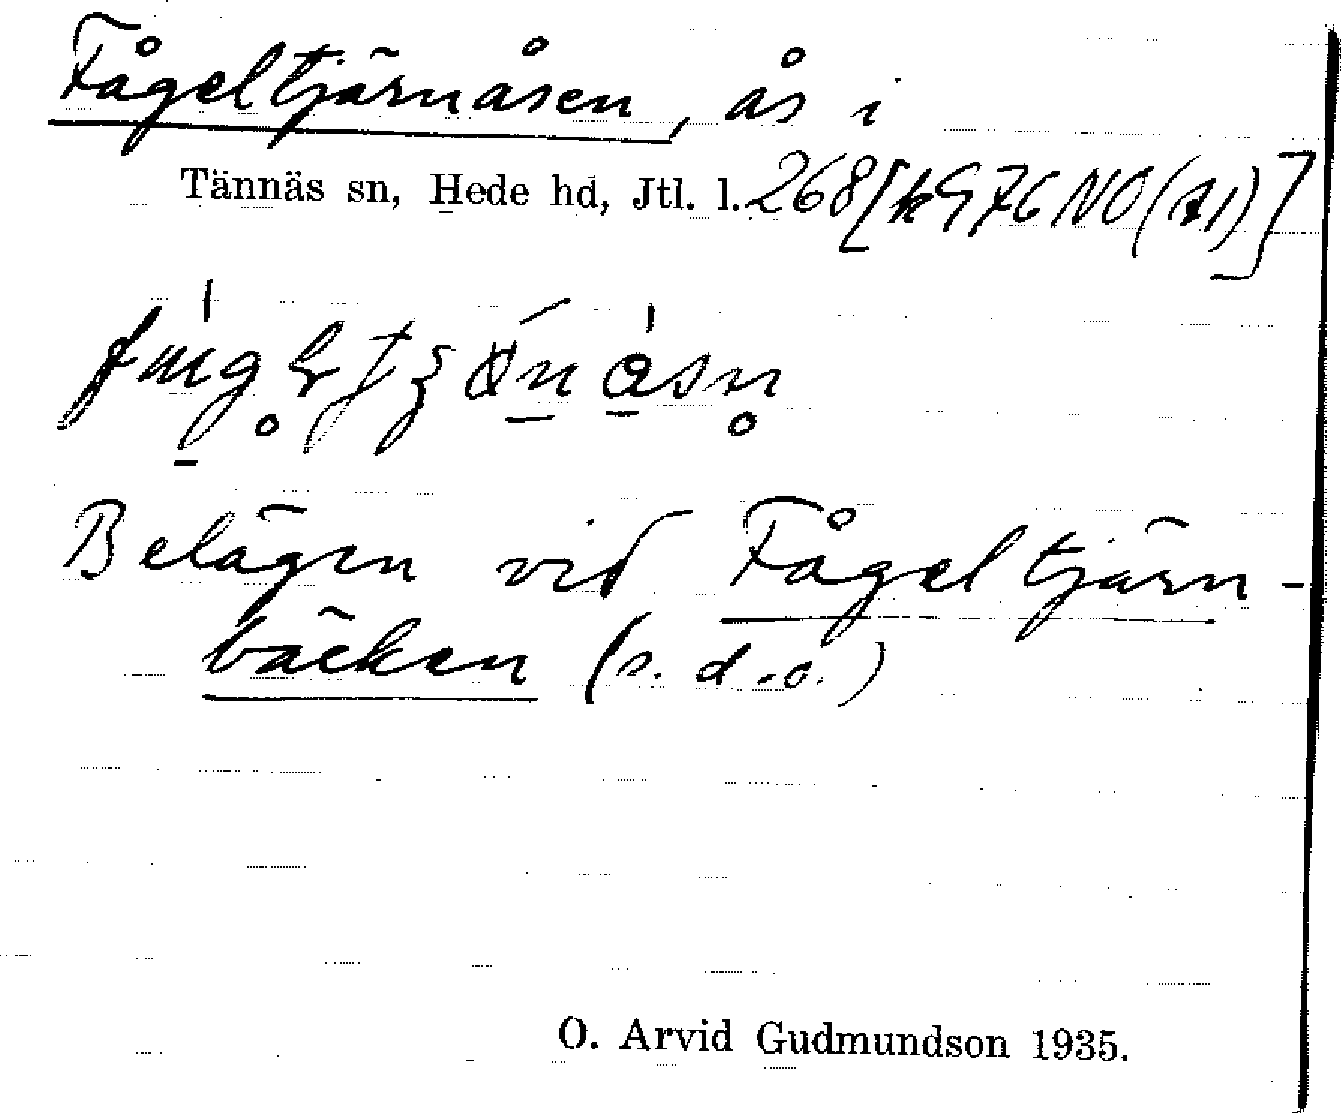 Fågeltjärnåsen, ås i
Tännäs sn, Hede hd, Jtl. l. 268
Belägen vid Fågeltjärn-
bäcken (s. d. o.)
O. Arvid Gudmundson 1935.